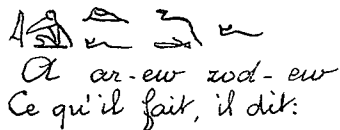 A ar-ew zod-ew
Ce qu'il fait, il dit: